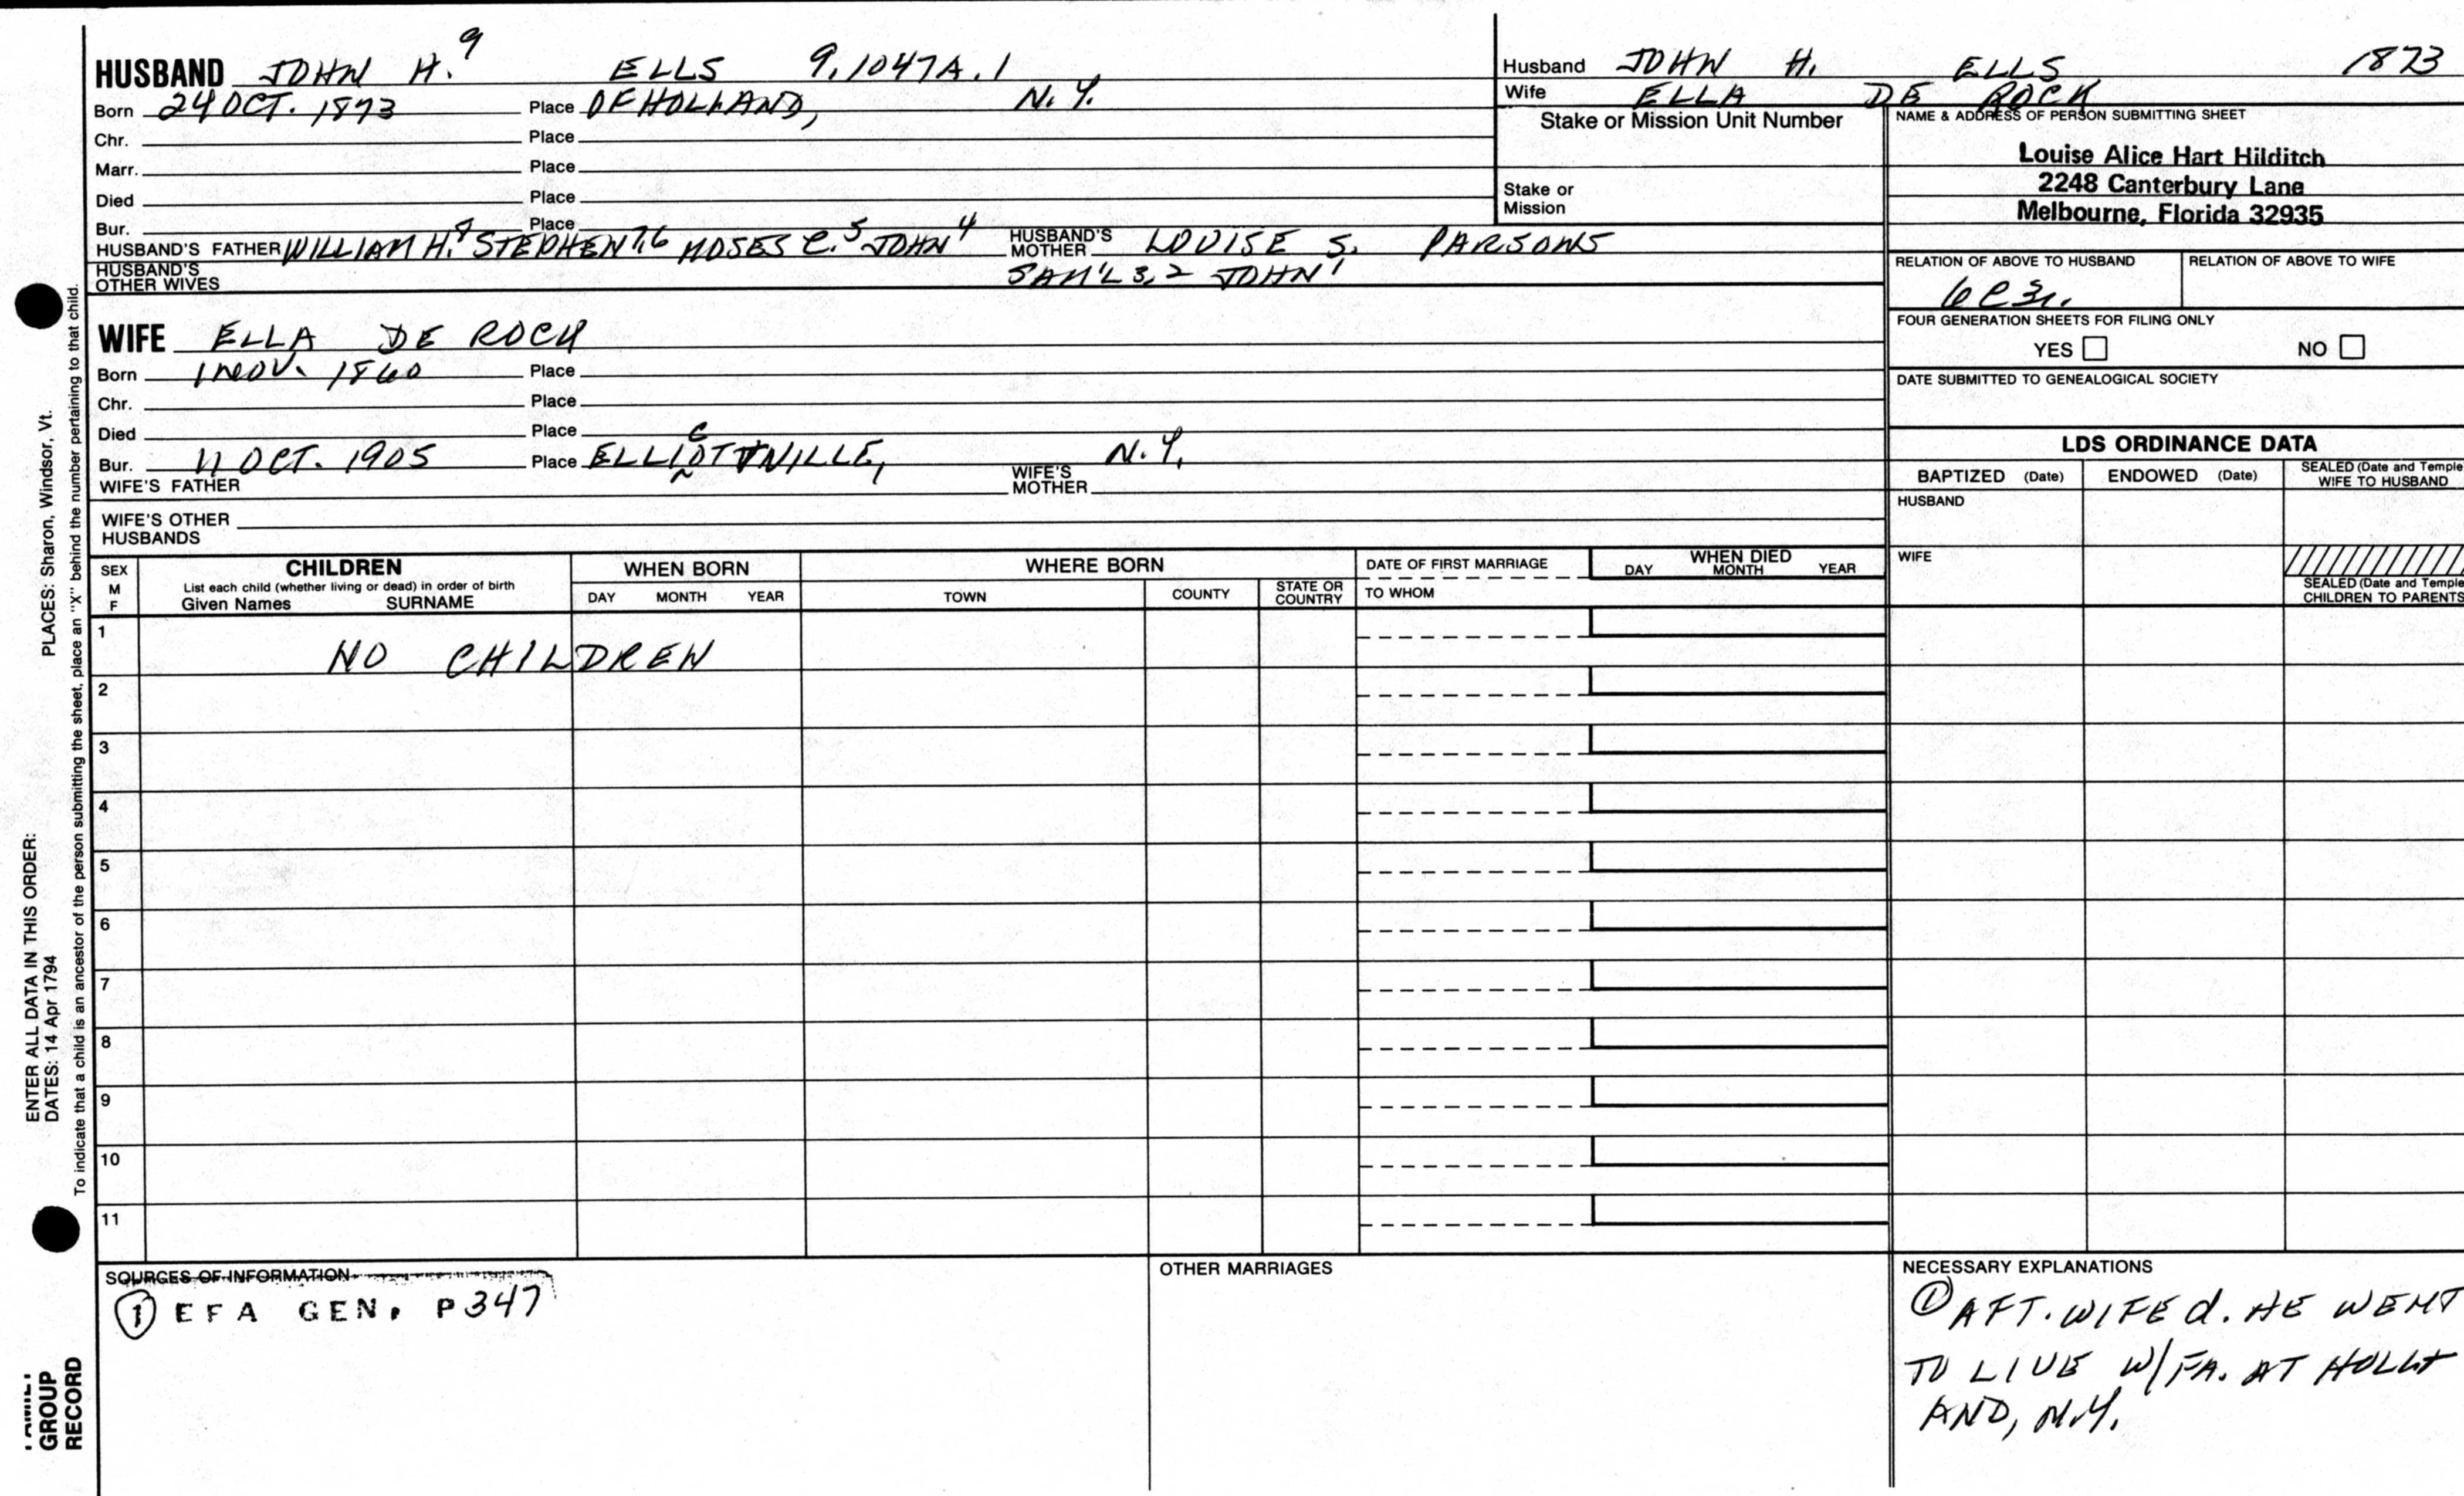 HUSBAND JOHN H.⁹ ELLS 9.1047A.1
Born 24 OCT. 1873 Place OF HOLLAND, N.Y.
Chr. Place
Marr. Place
Died Place
Bur. Place
HUSBAND'S FATHER WILLIAM H.⁸ STEPHEN⁷,⁶ MOSES C.⁵ JOHN⁴ HUSBAND'S MOTHER LOUISE S. PARSONS
HUSBAND'S OTHER WIVES SAM'L ³,² JOHN¹
WIFE ELLA DE ROCK
Born 1 NOV. 1860 Place
Chr. Place
Died Place
Bur. 11 OCT. 1905 Place N.Y.
WIFE'S FATHER WIFE'S MOTHER
WIFE'S OTHER HUSBANDS
Husband JOHN H. ELLS 1873
Wife ELLA DE ROCK
Stake or Mission Unit Number
Stake or Mission
NAME & ADDRESS OF PERSON SUBMITTING SHEET
Louise Alice Hart Hilditch
2248 Canterbury Lane
Melbourne, Florida 32935
RELATION OF ABOVE TO HUSBAND RELATION OF ABOVE TO WIFE
FOUR GENERATION SHEETS FOR FILING ONLY
YES NO
DATE SUBMITTED TO GENEALOGICAL SOCIETY
LDS ORDINANCE DATA
BAPTIZED (Date) ENDOWED (Date) SEALED (Date and Temple WIFE TO HUSBAND
HUSBAND
WIFE
SEALED (Date and Temple
CHILDREN TO PARENTS
SEX M F CHILDREN WHEN BORN WHERE BORN DATE OF FIRST MARRIAGE WHEN DIED
List each child (whether living or dead) in order of birth
Given Names SURNAME DAY MONTH YEAR TOWN COUNTY STATE OR COUNTRY TO WHOM DAY MONTH YEAR
1 NO CHILDREN
2
3
4
5
6
7
8
9
10
11
SOURCES OF INFORMATION
① EFA GEN. P347
OTHER MARRIAGES
NECESSARY EXPLANATIONS
① AFT. WIFE d. HE WENT
TO LIVE W/FA. AT HOLL
AND, N.Y.
ENTER ALL DATA IN THIS ORDER:
DATES: 14 Apr 1794 PLACES: Sharon, Windsor, Vt.
To indicate that a child is an ancestor of the person submitting the sheet, place an "X" behind the number pertaining to that child.
GROUP
RECORD